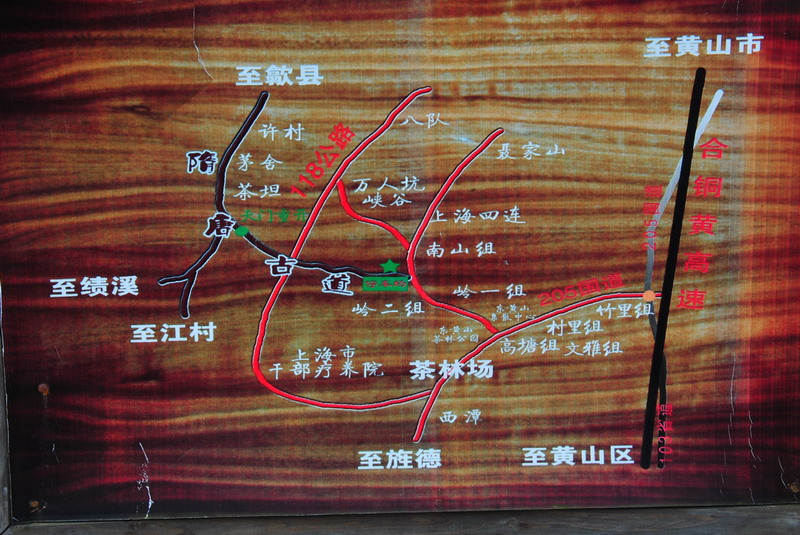 至黄山市
至歙县
许村
茅舍
茶坦
隋
唐
古
道
118公路
八队
聂家山
万人坑
峡谷
上海四连
南山组
岭一组
岭二组
205国道
合
铜
黄
高
速
竹里组
村里组
高塘组
文雅组
东黄山
茶林公园
茶林场
上海市
干部疗养院
西潭
至绩溪
至江村
至旌德
至黄山区